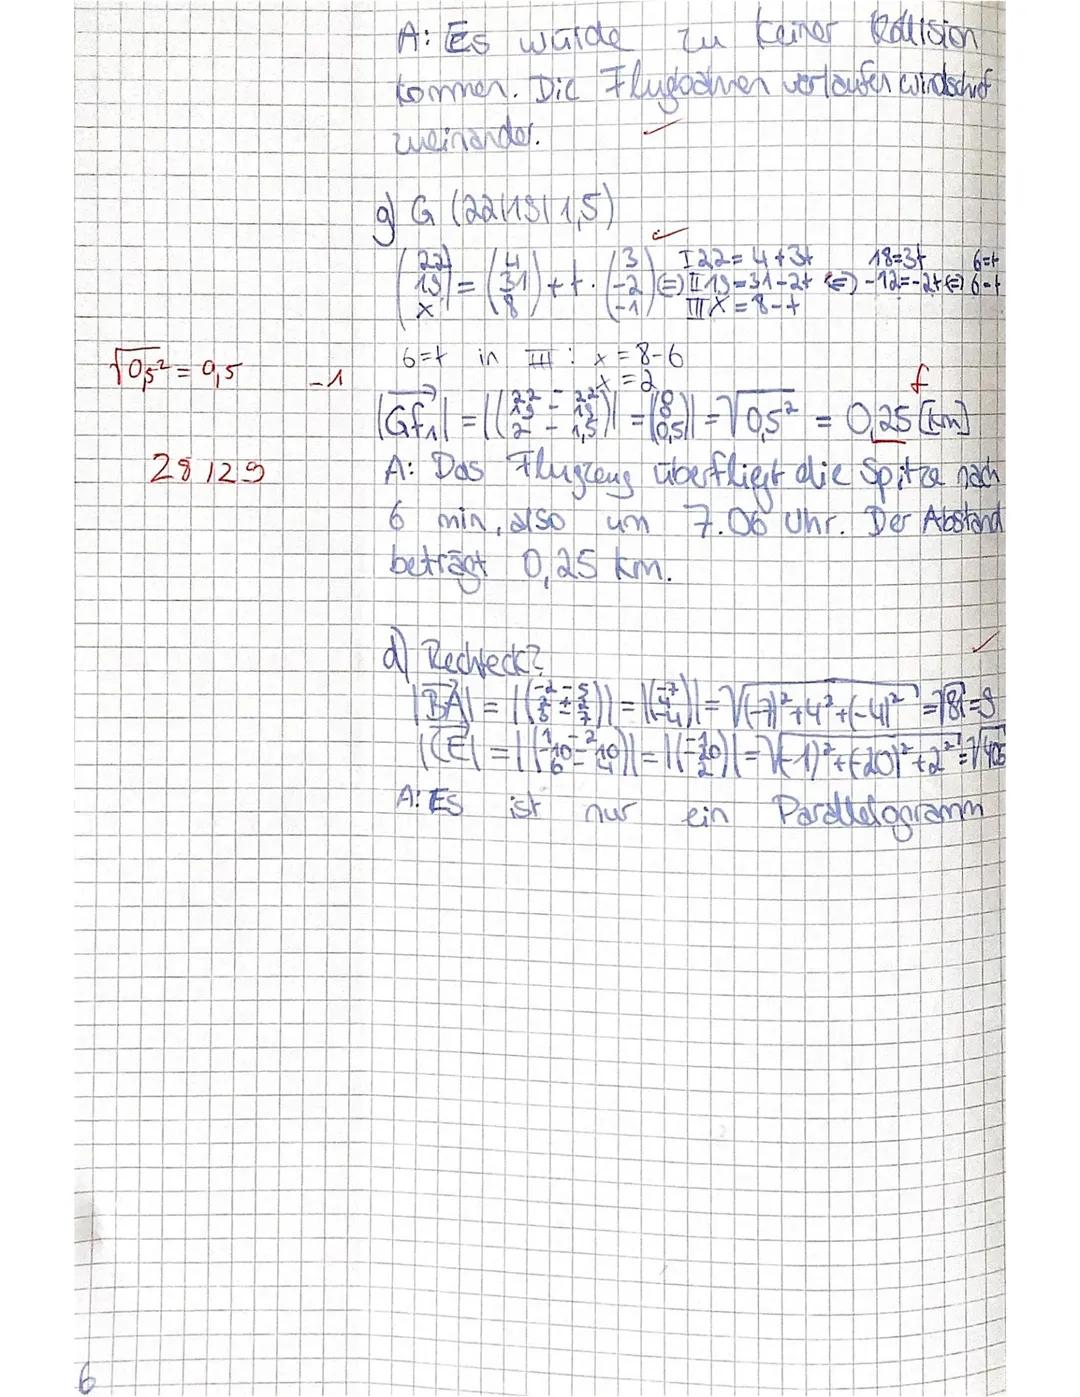 A: Es würde zu keiner Kollision
kommen. Die Flugbahnen verlaufen windschief
zueinander. ✓
g) G (22|19|1,5)
(22 19 x) = (4 31 8) + t · (3 -2 -1) ✓
⇔ I 22 = 4 + 3t 18=3t 6=t
II 19=31-2t ⇔ -12=-2t ⇔ 6=t
III x = 8-t
6=t in III: x = 8-6
x = 2
√0,5² = 0,5 -1
|Gf₁| = |(22 - 22 19 - 19 2 - 1,5)| = |(0 0 0,5)| = √0,5² = 0,25 [km] f
28/29
A: Das Flugzeug überfliegt die Spitze nach
6 min, also um 7.06 Uhr. Der Abstand
beträgt 0,25 km.
d) Rechteck? ✓
|BA| = |(-7 4 -4)| = √(-7)²+4²+(-4)² = √81=9
|CE| = |(-1 -20 2)| = √(-1)²+(-20)²+2² = √405
A: Es ist nur ein Parallelogramm
6